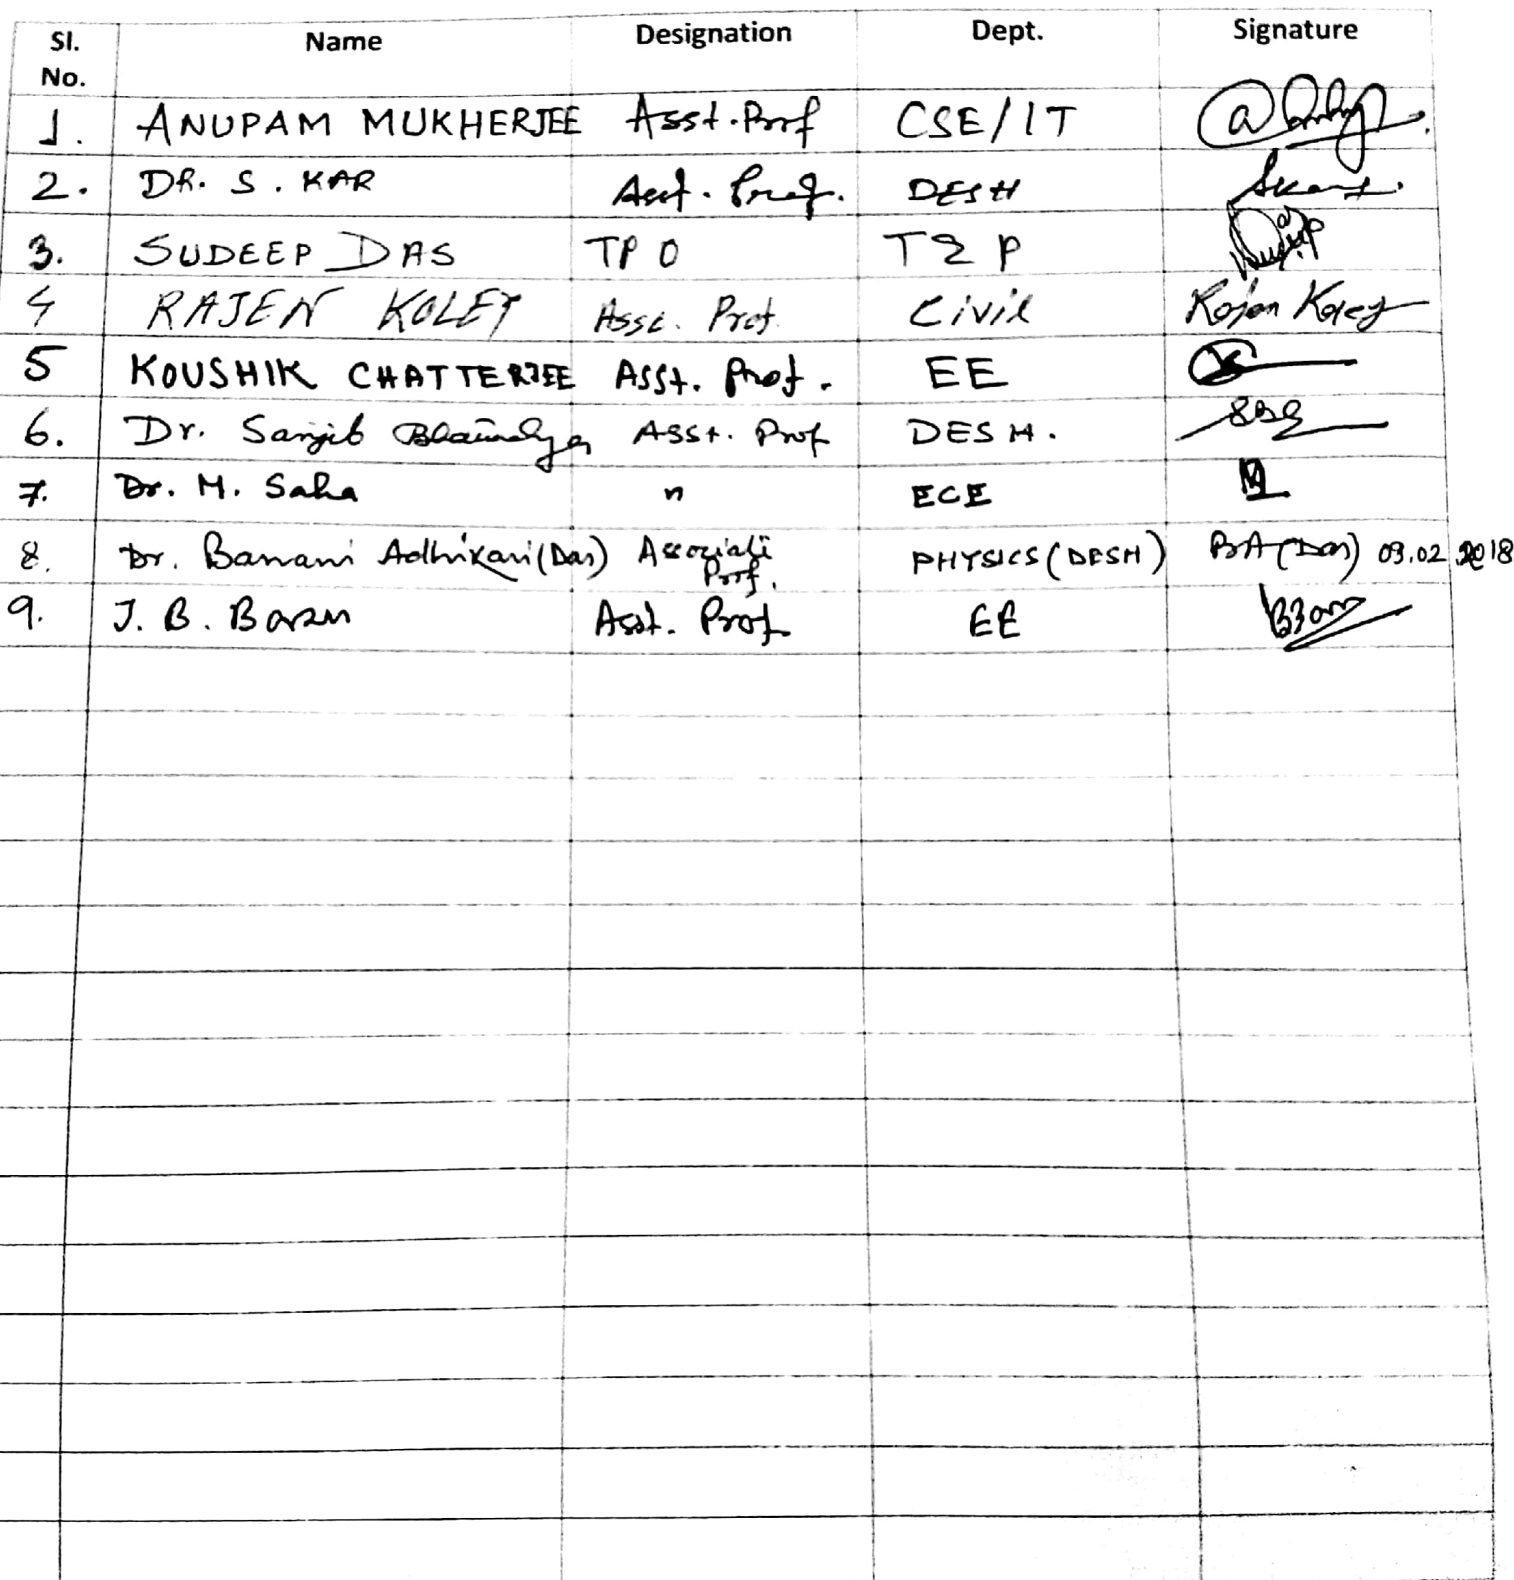 Sl. No. Name Designation Dept. Signature
1. ANUPAM MUKHERJEE Asst. Prof CSE/IT
2. DR. S. KAR Asst. Prof. DESH
3. SUDEEP DAS TPO T&P
4 RAJEN KOLEY Asst. Prof. Civil Rajen Koley
5 KOUSHIK CHATTERJEE Asst. Prof. EE
6. Dr. Sanjib Bhattacharya Asst. Prof DESH.
7. Dr. M. Saha " ECE
8. Dr. Banani Adhikari (Das) Associate Prof. PHYSICS (DESH) BA (Das) 03.02.2018
9. J. B. Barsu Asst. Prof EE